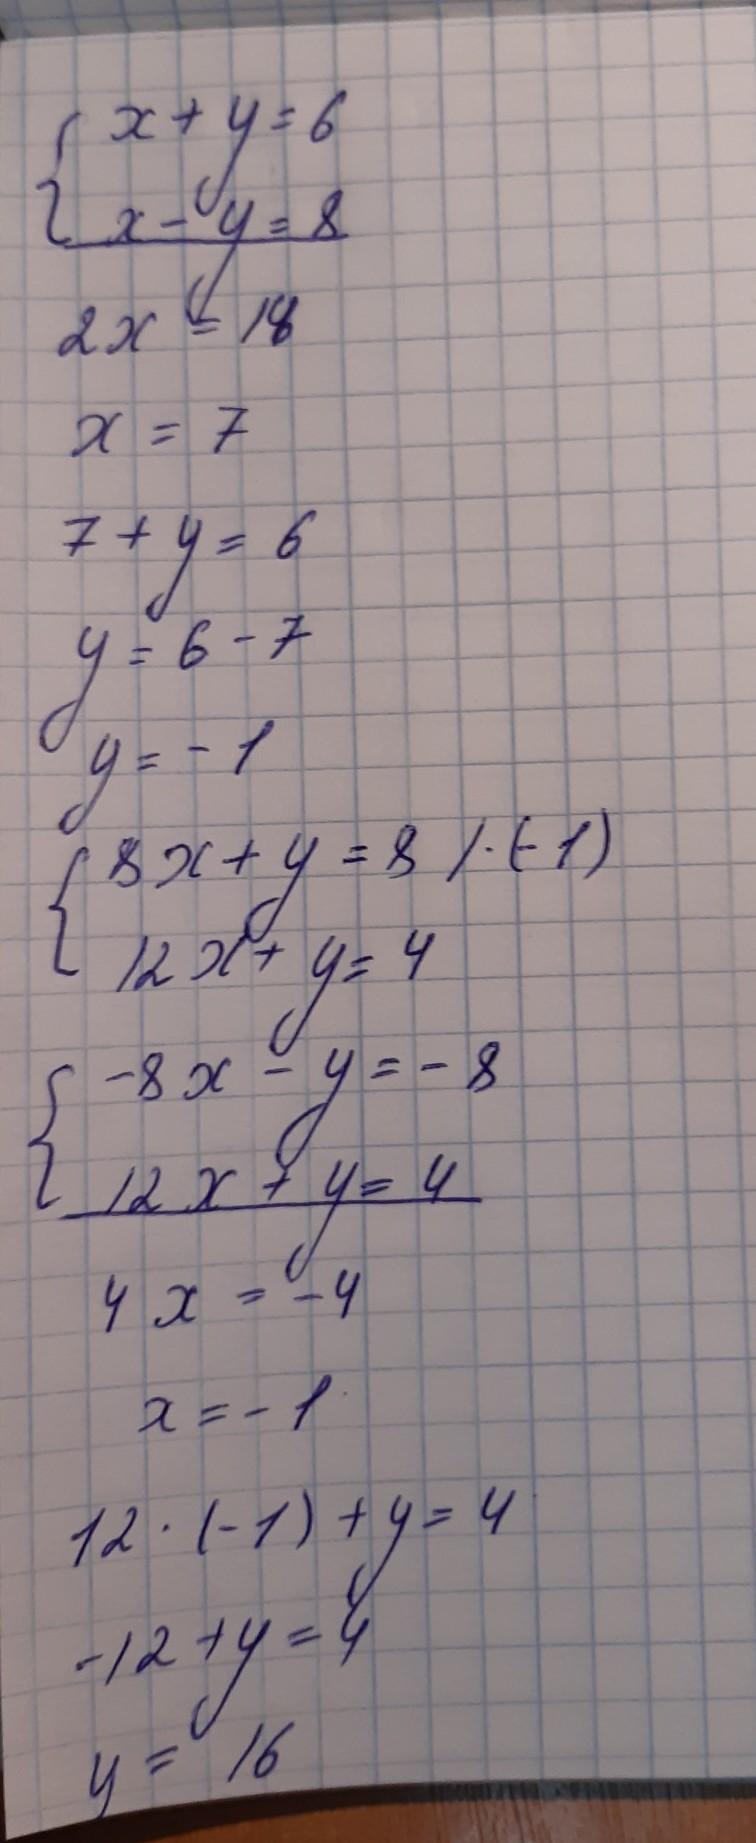 x + y = 6
x - y = 8
2x = 14
x = 7
7 + y = 6
y = 6 - 7
y = - 1
8x + y = 8 / · (-1)
12x + y = 4
-8x - y = - 8
12x + y = 4
4x = -4
x = - 1
12 · (-1) + y = 4
-12 + y = 4
y = 16